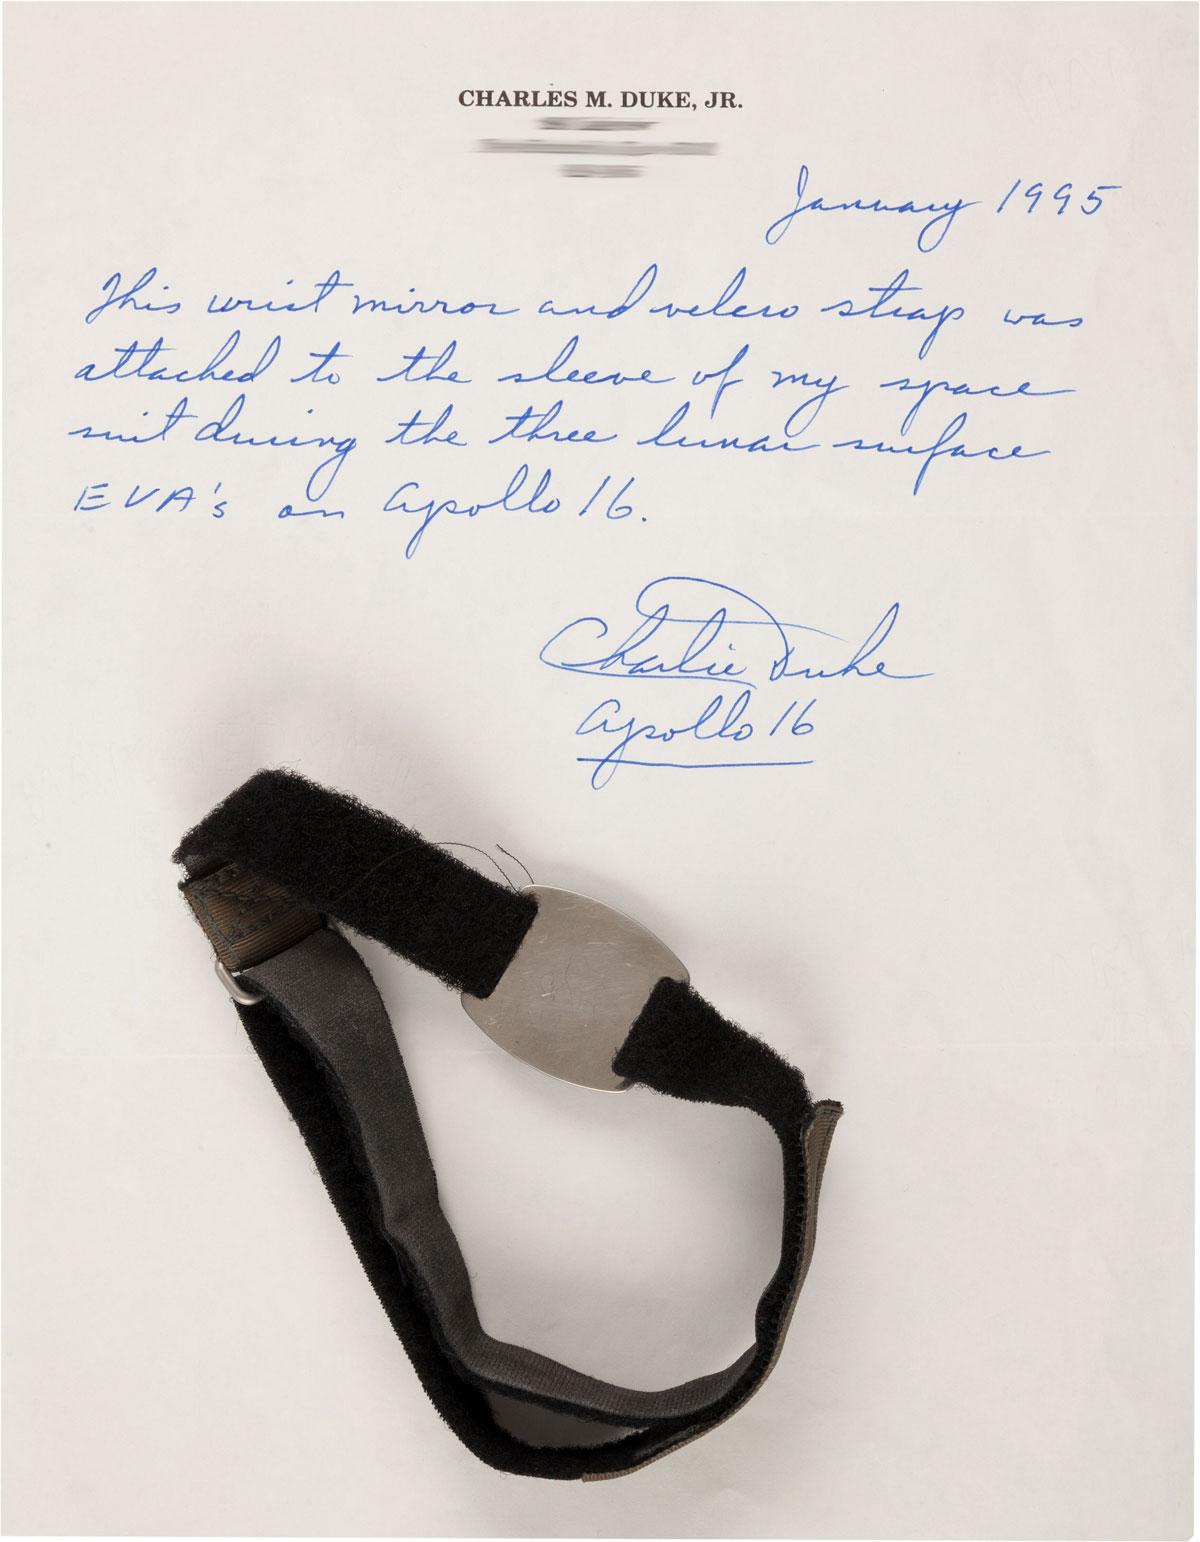 CHARLES M. DUKE, JR.
January 1995
This wrist mirror and velcro strap was
attached to the sleeve of my space
suit during the three lunar surface
EVA's on Apollo 16.
Charlie Duke
Apollo 16